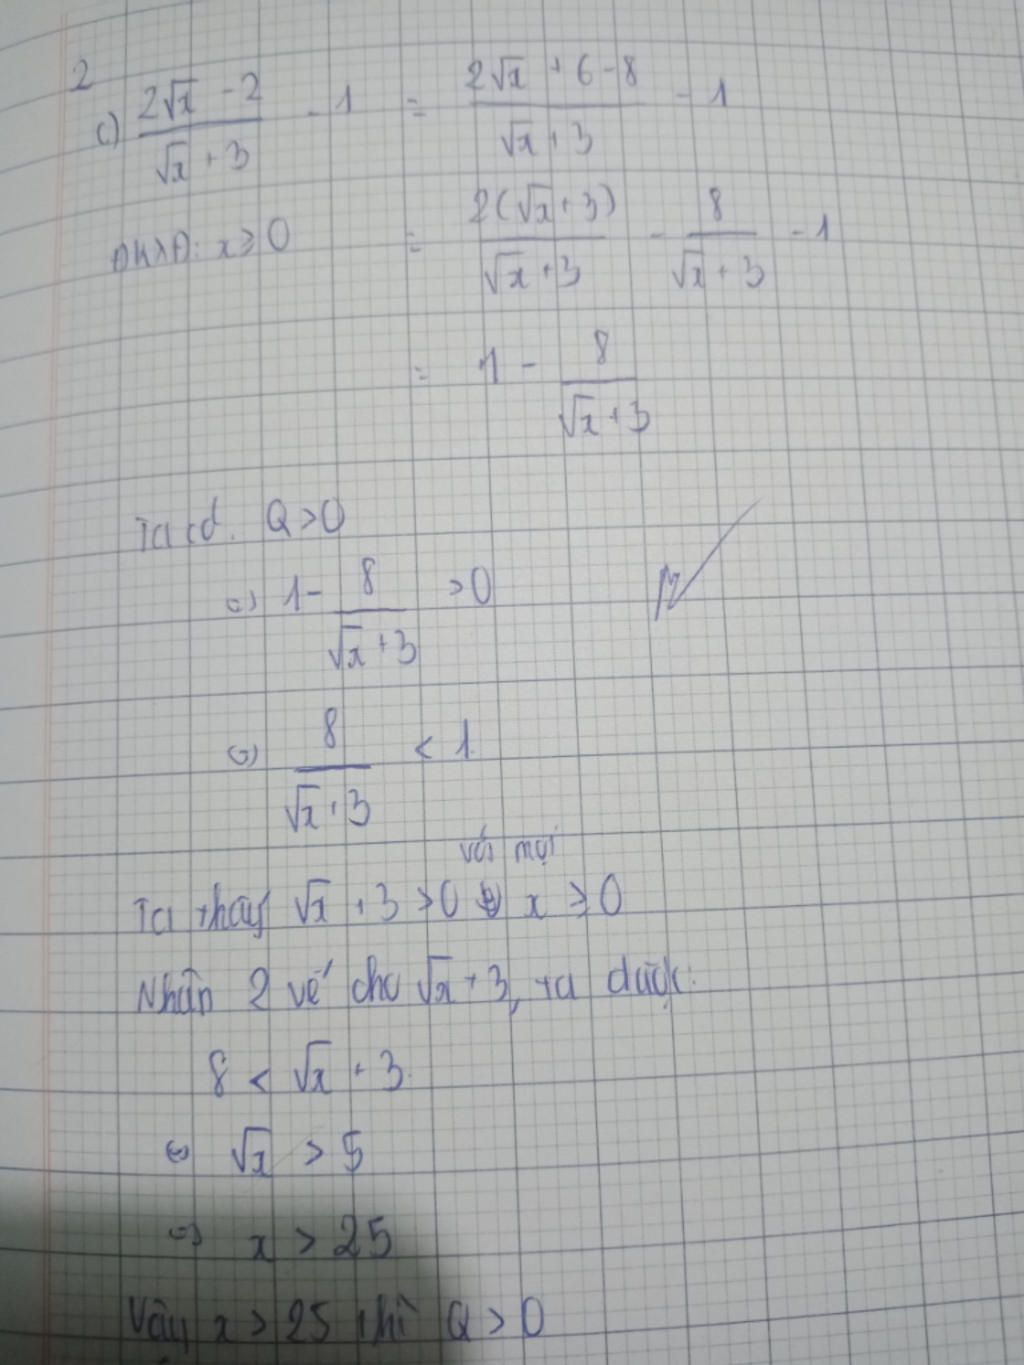 2
c) (2√x - 2)/(√x + 3) - 1 = (2√x + 6 - 8)/(√x + 3) - 1
ĐKXĐ: x ≥ 0 = 2(√x + 3)/(√x + 3) - 8/(√x + 3) - 1
= 1 - 8/(√x + 3)
Ta có. Q > 0
⇔ 1 - 8/(√x + 3) > 0
⇔ 8/(√x + 3) < 1
Ta thấy √x + 3 > 0 với mọi x ≥ 0
Nhân 2 vế cho √x + 3, ta được:
8 < √x + 3
⇔ √x > 5
⇔ x > 25
Vậy x > 25 thì Q > 0